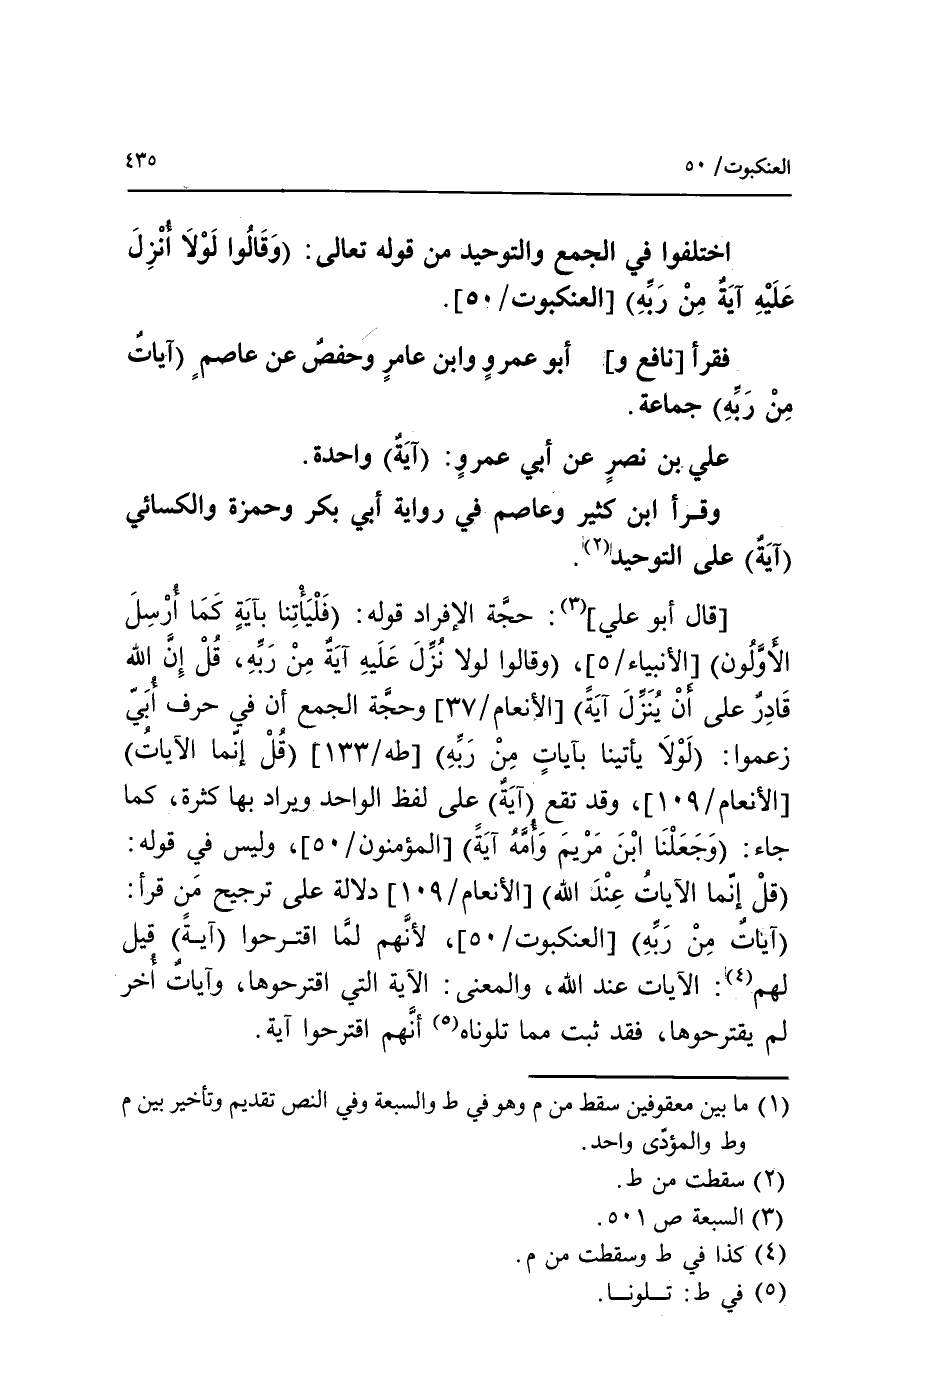 العنكبوت/ ٥٠
٤٣٥
اختلفوا في الجمع والتوحيد من قوله تعالى: (وَقَالُوا لَوْلاَ أُنْزِلَ
عَلَيْهِ آيَةٌ مِنْ رَبِّهِ) [العنكبوت/ ٥٠].
فقرأ [نافع و] أبو عمروٍ وابن عامرٍ وحفصٌ عن عاصمٍ (آياتٌ
مِنْ رَبِّهِ) جماعة.
علي بن نصرٍ عن أبي عمروٍ: (آيَةٌ) واحدة.
وقـرأ ابن كثير وعاصم في رواية أبي بكر وحمزة والكسائي
(آيَةٌ) على التوحيد(٢).
[قال أبو علي](٣): حجَّة الإفراد قوله: (فَلْيَأْتِنا بآيَةٍ كَمَا أُرْسِلَ
الأَوَّلُون) [الأنبياء/ ٥]، (وقالوا لولا نُزِّلَ عَلَيهِ آيَةٌ مِنْ رَبِّهِ، قُلْ إِنَّ الله
قَادِرٌ على أَنْ يُنَزِّلَ آيَةً) [الأنعام/ ٣٧] وحجَّة الجمع أن في حرف أُبَيّ
زعموا: (لَوْلَا يأتينا بآياتٍ مِنْ رَبِّهِ) [طه/ ١٣٣] (قُلْ إنّما الآياتُ)
[الأنعام/ ١٠٩]، وقد تقع (آيَةٌ) على لفظ الواحد ويراد بها كثرة، كما
جاء: (وَجَعَلْنَا ابْنَ مَرْيمَ وَأُمَّهُ آيَةً) [المؤمنون/ ٥٠]، وليس في قوله:
(قلْ إنّما الآياتُ عِنْدَ الله) [الأنعام/ ١٠٩] دلالة على ترجيح مَن قرأ:
(آيَاتٌ مِنْ رَبِّهِ) [العنكبوت/ ٥٠]، لأنَّهم لمَّا اقتـرحوا (آيـةً) قيل
لهم(٤): الآيات عند الله، والمعنى: الآية التي اقترحوها، وآياتٌ أُخر
لم يقترحوها، فقد ثبت مما تلوناه(٥) أنَّهم اقترحوا آية.
(١) ما بين معقوفين سقط من م وهو في ط والسبعة وفي النص تقديم وتأخير بين م
وط والمؤدّى واحد.
(٢) سقطت من ط.
(٣) السبعة ص ٥٠١.
(٤) كذا في ط وسقطت من م.
(٥) في ط: تــلونــا.